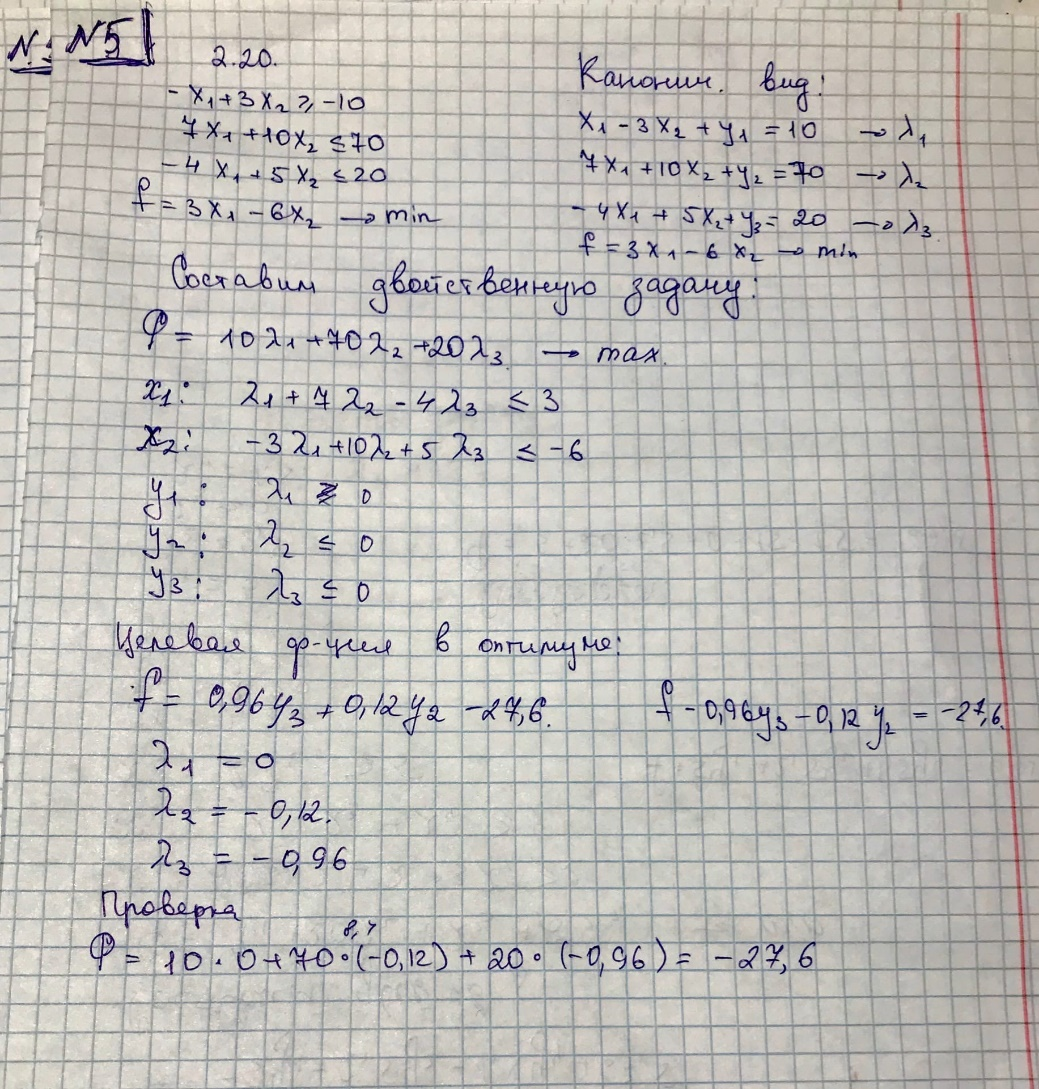 N: N5
2.20.
-x₁+3x₂ ≥ -10
7x₁+10x₂ ≤ 70
-4x₁+5x₂ ≤ 20
f = 3x₁ - 6x₂ → min
Канонич. вид:
x₁ - 3x₂ + y₁ = 10 → λ₁
7x₁+10x₂+y₂ = 70 → λ₂
-4x₁ + 5x₂+y₃ = 20 → λ₃
f = 3x₁ - 6x₂ → min
Составим двойственную задачу:
φ = 10λ₁+70λ₂+20λ₃ → max.
x₁: λ₁ + 7λ₂ - 4λ₃ ≤ 3
x₂: -3λ₁+10λ₂+5λ₃ ≤ -6
y₁: λ₁ ≤ 0
y₂: λ₂ ≤ 0
y₃: λ₃ ≤ 0
Целевая ф-ция в оптимуме:
f = 0,96y₃ + 0,12y₂ - 27,6. f - 0,96y₃ - 0,12y₂ = -27,6.
λ₁ = 0
λ₂ = -0,12.
λ₃ = -0,96
Проверка
8,4
φ = 10·0+70·(-0,12) + 20·(-0,96) = -27,6